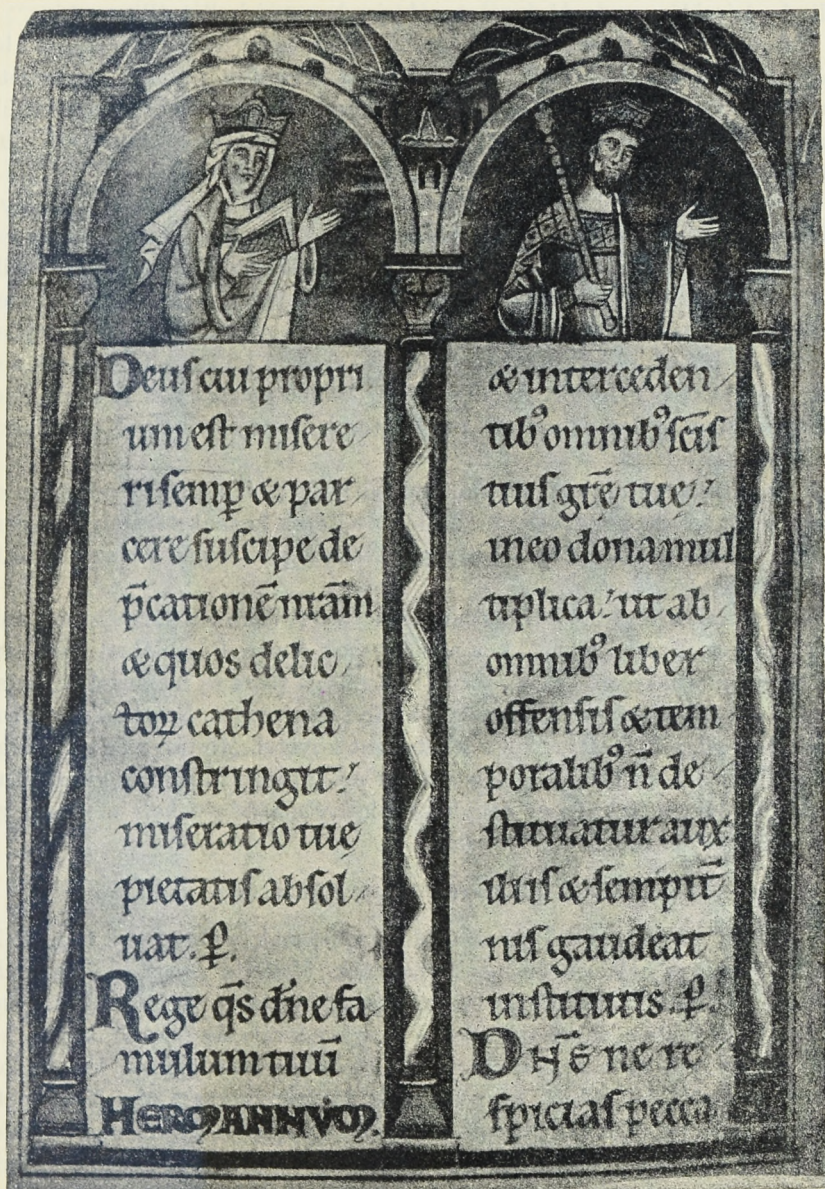 Deus cuı proprı
um est misere
ri semꝑ & par
cere suscipe de
p̄cationē nr̄am
& quos delic
toꝝ cathena
constringit:
miseratio tuę
pietatis absol
uat. P̱.
Rege qs̄ dn̄e fa
mulum tuū
HERMANNVM.
& interceden
tibꝰ omnibꝰ sc̄is
tuis grę̄ tuę:
in eo dona mul
tiplica: ut ab
omnibꝰ liber
offensis & tem
poralibꝰ n̄ de
stituatur aux
iliis & sempit̄
nis gaudeat
institutis. P̱.
Dn̄s ne re
spicias pecca